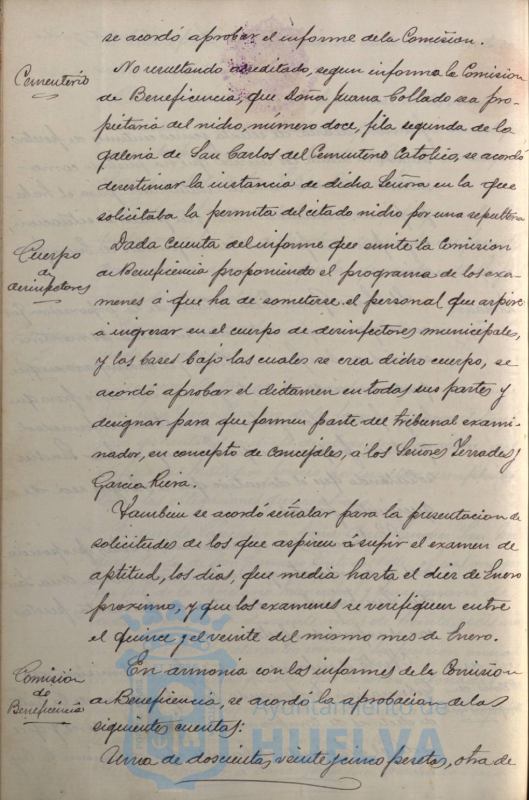 se acordó aprobar el informe de la Comisión.
Cementerio
No resultando acreditado, segun informa la Comision
de Beneficencia, que Doña Juana Collado sea pro-
pietaria del nicho, número doce, fila segunda de la
galeria de San Carlos del Cementerio Catolico, se acordó
desestimar la instancia de dicha Señora en la que
solicitaba la permuta del citado nicho por una sepultura
Cuerpo
de
desinfectores
Dada cuenta del informe que emite la Comision
de Beneficencia proponiendo el programa de los exa-
menes á que ha de someterse el personal que aspire
á ingresar en el cuerpo de desinfectores municipales,
y las bases bajo las cuales se crea dicho cuerpo, se
acordó aprobar el dictamen en todas sus partes y
designar para que formen parte del tribunal exami-
nador, en concepto de concejales, á los Señores Terrades y
Garcia Riera.
Tambien se acordó señalar para la presentacion de
solicitudes de los que aspiren á sufrir el examen de
aptitud, los dias, que media hasta el diez de Enero
proximo, y que los examenes se verifiquen entre
el quince y el veinte del mismo mes de Enero.
Comisión
de
Beneficencia
En armonia con los informes de la Comisión
de Beneficencia, se acordó la aprobacion de las
siguientes cuentas:
Una de doscientas veinte y cinco pesetas, otra de
Ayuntamiento de
HUELVA